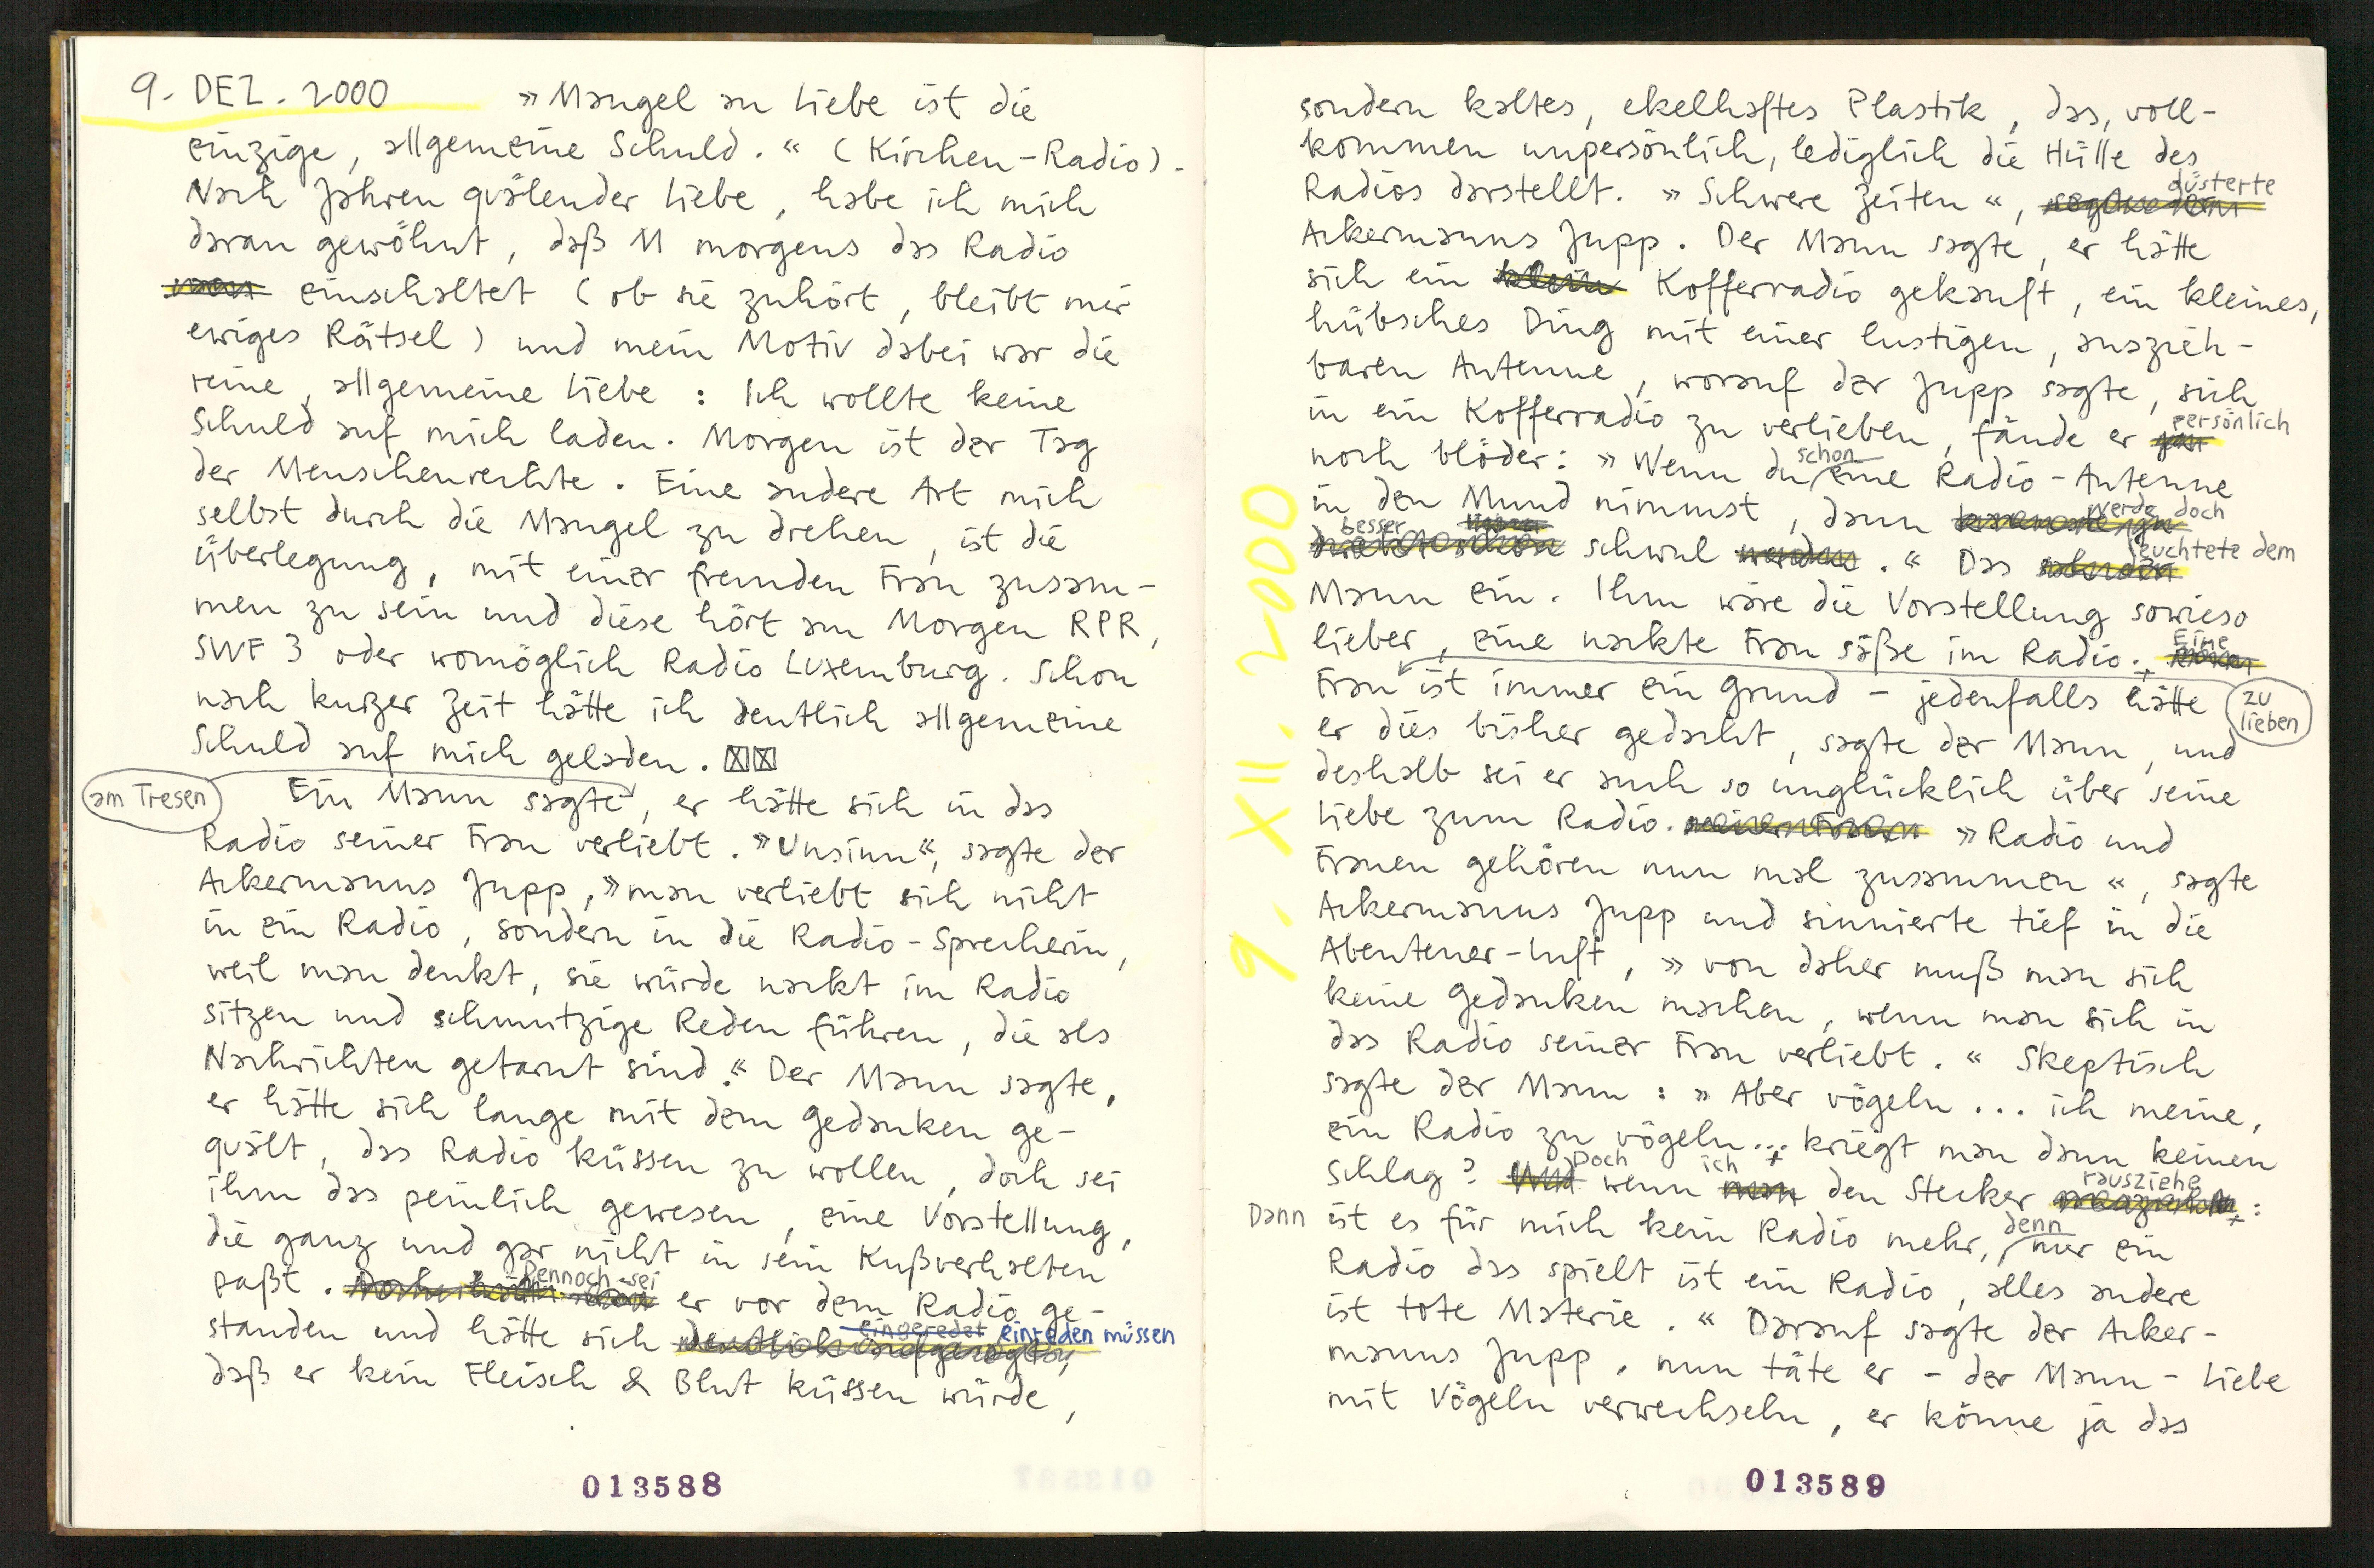 9. DEZ. 2000 »Mangel an Liebe ist die
einzige, allgemeine Schuld.« (Kirchen-Radio).
Nach Jahren quälender Liebe, habe ich mich
daran gewöhnt, daß M morgens das Radio
einschaltet (ob sie zuhört, bleibt mir
ewiges Rätsel) und mein Motiv dabei war die
reine, allgemeine Liebe: Ich wollte keine
Schuld auf mich laden. Morgen ist der Tag
der Menschenrechte. Eine andere Art mich
selbst durch die Mangel zu drehen, ist die
Überlegung, mit einer fremden Frau zusam-
men zu sein und diese hört am Morgen RPR,
SWF 3 oder womöglich Radio Luxemburg. Schon
nach kurzer Zeit hätte ich deutlich allgemeine
Schuld auf mich geladen. ☒☒
am Tresen
Ein Mann sagte, er hätte sich in das
Radio seiner Frau verliebt. »Unsinn«, sagte der
Ackermanns Jupp, »man verliebt sich nicht
in ein Radio, sondern in die Radio-Sprecherin,
weil man denkt, sie würde nackt im Radio
sitzen und schmutzige Reden führen, die als
Nachrichten getarnt sind.« Der Mann sagte,
er hätte sich lange mit dem Gedanken ge-
quält, das Radio küssen zu wollen, doch sei
ihm das peinlich gewesen, eine Vorstellung,
die ganz und gar nicht in sein Kußverhalten
paßt. Dennoch sei er vor dem Radio ge-
standen und hätte sich eingeredet einreden müssen
daß er kein Fleisch & Blut küssen würde,
013588
sondern kaltes, ekelhaftes Plastik, das, voll-
kommen unpersönlich, lediglich die Hülle des
Radios darstellt. »Schwere Zeiten«, düsterte
Ackermanns Jupp. Der Mann sagte, er hätte
sich ein klein Kofferradio gekauft, ein kleines,
hübsches Ding mit einer lustigen, auszieh-
baren Antenne, worauf der Jupp sagte, sich
in ein Kofferradio zu verlieben, fände er persönlich
noch blöder: »Wenn du schon eine Radio-Antenne
in den Mund nimmst, dann werde doch
besser lieber schwul werden.« Das leuchtete dem
Mann ein. Ihm wäre die Vorstellung sowieso
lieber, eine nackte Frau säße im Radio. Eine
Frau ist immer ein Grund - jedenfalls hätte
zu
lieben
er dies bisher gedacht, sagte der Mann, und
deshalb sei er auch so unglücklich über seine
Liebe zum Radio. »Radio und
Frauen gehören nun mal zusammen«, sagte
Ackermanns Jupp und sinnierte tief in die
Abenteuer-Luft, »von daher muß man sich
keine Gedanken machen, wenn man sich in
das Radio seiner Frau verliebt.« Skeptisch
sagte der Mann: »Aber vögeln... ich meine,
ein Radio zu vögeln... kriegt man dann keinen
Schlag? Und Doch wenn man ich den Stecker rausziehe:
Dann ist es für mich kein Radio mehr, denn nur ein
Radio das spielt ist ein Radio, alles andere
ist tote Materie.« Darauf sagte der Acker-
manns Jupp, nun täte er - der Mann - Liebe
mit Vögeln verwechseln, er könne ja das
013589
9. XII. 2000